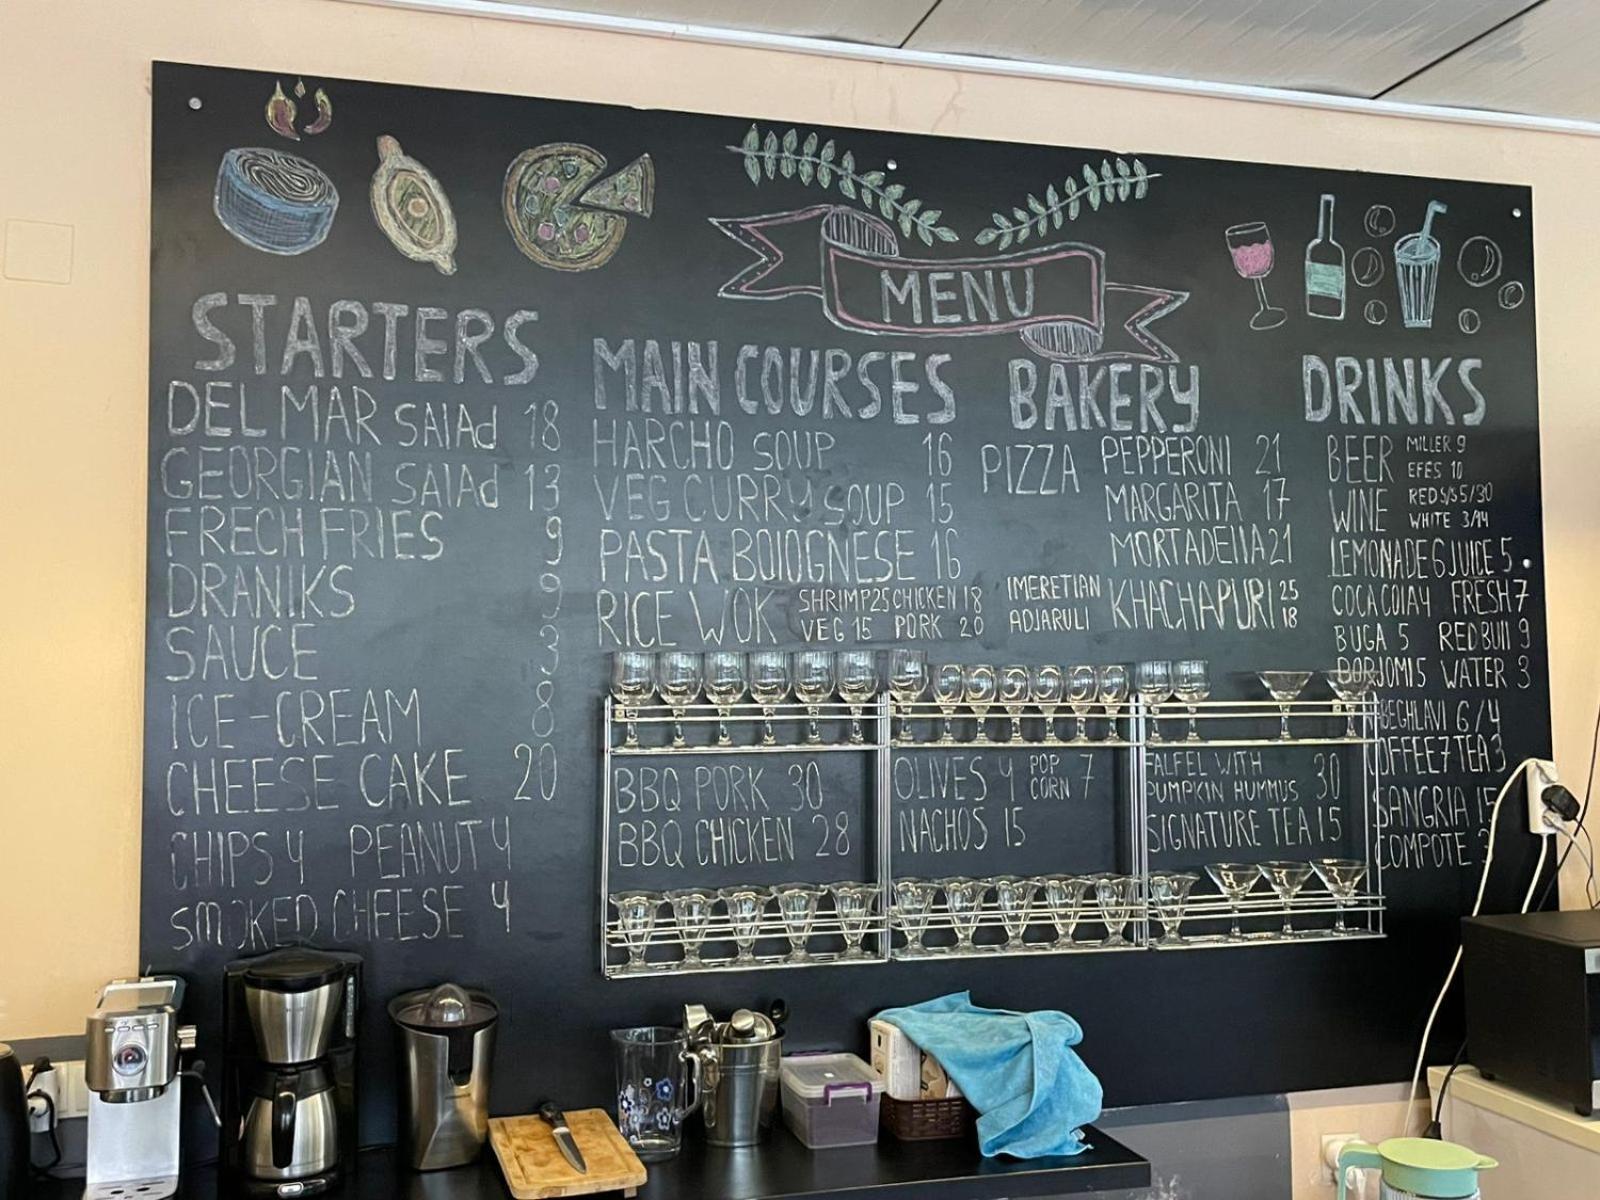 MENU
STARTERS
DEL MAR SAlAd 18
GEORGIAN SAlAd 13
FRECH FRIES 9
DRANIKS 9
SAUCE 3
ICE-CREAM 8
CHEESE CAKE 20
CHIPS 4 PEANUT 4
SMOKED CHEESE 4
MAIN COURSES
HARCHO SOUP 16
VEG CURRY SOUP 15
PASTA BOlOGNESE 16
RICE WOK SHRIMP 25 CHICKEN 18
VEG 15 PORK 20
BBQ PORK 30
BBQ CHICKEN 28
BAKERY
PIZZA PEPPERONI 21
MARGARITA 17
MORTADEllA 21
IMERETIAN KHACHAPURI 25
ADJARULI 18
OLIVES 4 POP CORN 7
NACHOS 15
FALFEL WITH
PUMPKIN HUMMUS 30
SIGNATURE TEA 15
DRINKS
BEER MILLER 9
EFES 10
WINE RED 5/30
WHITE
LEMONADE 6 JUICE 5
COCA COlA 4 FRESH 7
BUGA 5 RED BUll 9
BORJOMI 5 WATER 3
BEGHLAVI 6/4
OFFEE 7 TEA 3
SANGRIA 15
COMPOTE